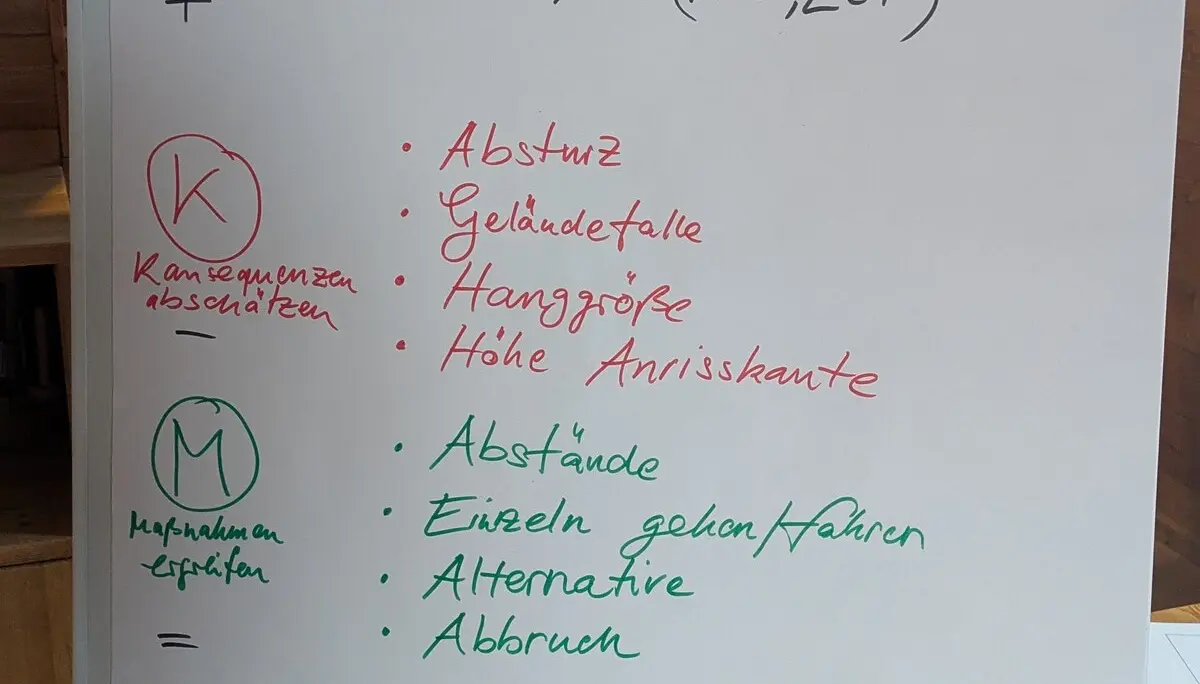 +
K
Konsequenzen
abschätzen
• Absturz
• Geländefalle
• Hanggröße
• Höhe Anrisskante
-
M
Maßnahmen
ergreifen
• Abstände
• Einzeln gehen/fahren
• Alternative
• Abbruch
=